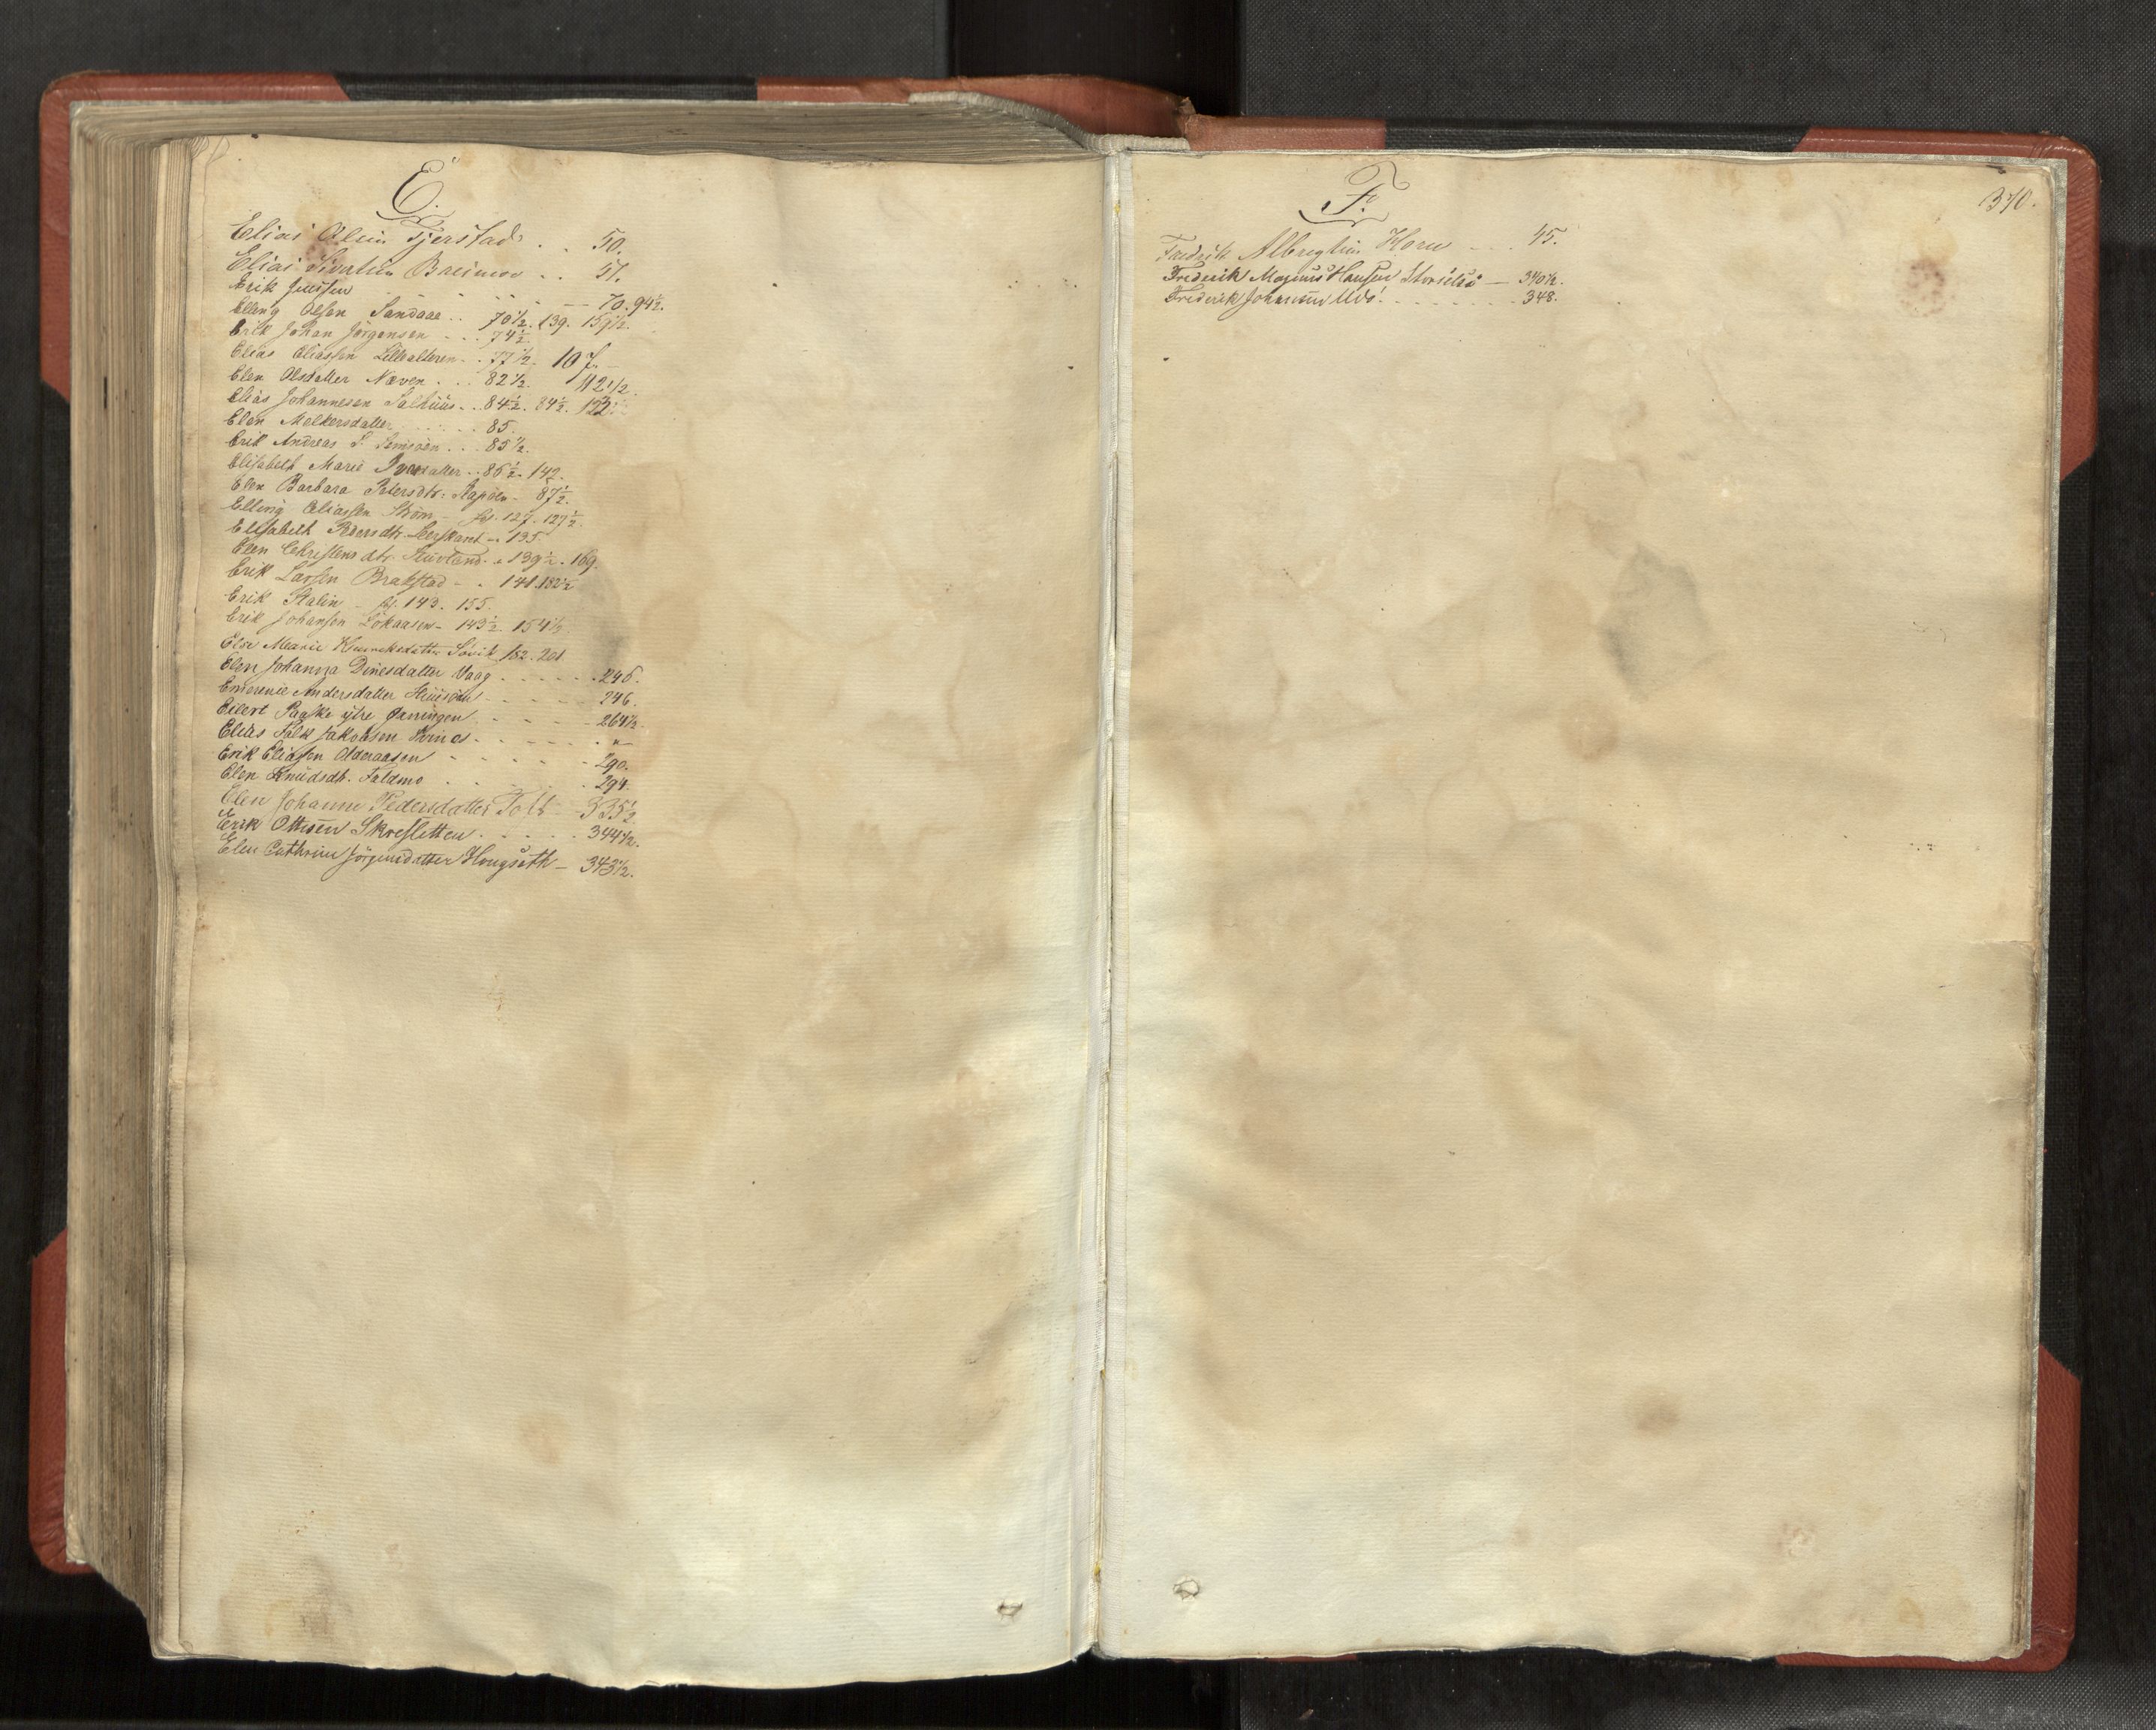 E.
Elias Olsen Tjerstad . . 50.
Elias Sivertsen Breimoe . . 57.
Erik Juussen . . . . -- 70. 94½.
Elling Olsen Sandaae . . 70½. 139. 159½.
Erik Johan Jörgensen - . . 74½.
Elias Eliassen Lillealteren . . 77½. 107.
Elen Olsdatter Næven . . . 82½. 112½.
Elias Johannesen Salhüüs . . 84½. 84½. 122
Elen Melkersdatter . . . . . 85.
Erik Andreas P. . . . 85½.
Elisabeth Marie Iversdatter . . 86½. 142.
Elen Barbara Petersdtr. - 87½.
Elling Eliassen Ström - fol. 127. 127½.
Elisabeth Pedersdtr. - 135
Elen Christensdtr. . 139½. 169.
Erik Larsen Brakstad - . 141. 182½
Erik Stalin - fol. 143. 155.
Erik Johansen Lökaasen - 143½. 154½
Else Marie Henriksdatter Søvik 182. 201
Elen Johanna Dinesdatter Vaag . . . . . . 246.
Emerenie Andersdatter . . . . 246.
Eilert Paaske ytre . . . . - 264½.
Elias Falk Jakobsen . . . . . . "
Erik Eliassen Olderaasen . . . . . - 290.
Elen Knüdsdtr. Faldmo . . . . 294.
Elen Johanna Pedersdatter Toft - 335½.
Erik Ottesen Skresletten . . . . . 344½.
Elen Cathrine Jörgensdatter Hougseth - 343½.
F.
370.
Fredrik Albregtsen Horn - . . . 45.
Frederik Magnus Hansen Storselsö - 340½.
Frederik Johansen . . . . . . . 348.